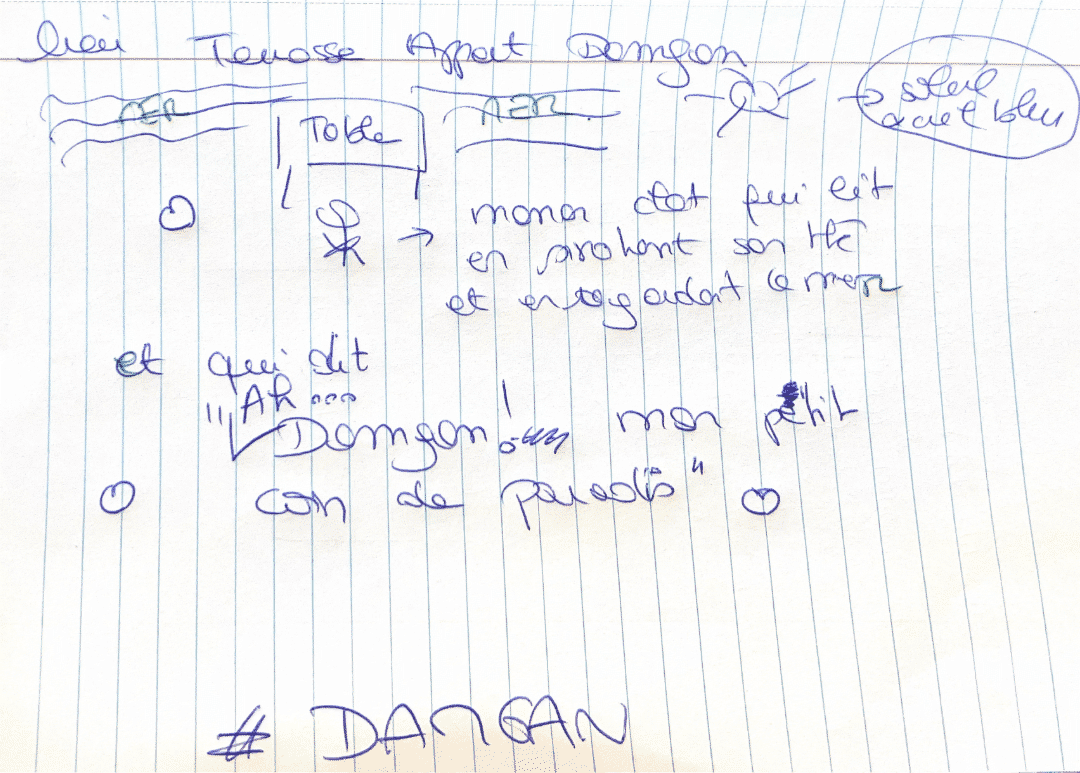 Lieu Terrasse Appart Damgan
MER Table MER → soleil
& ciel bleu
→ maman chat qui lit
en sirotant son thé
et en regardant la mer
et qui dit
"Ah...
Damgan! mon petit
coin de paradis"
# DAMGAN